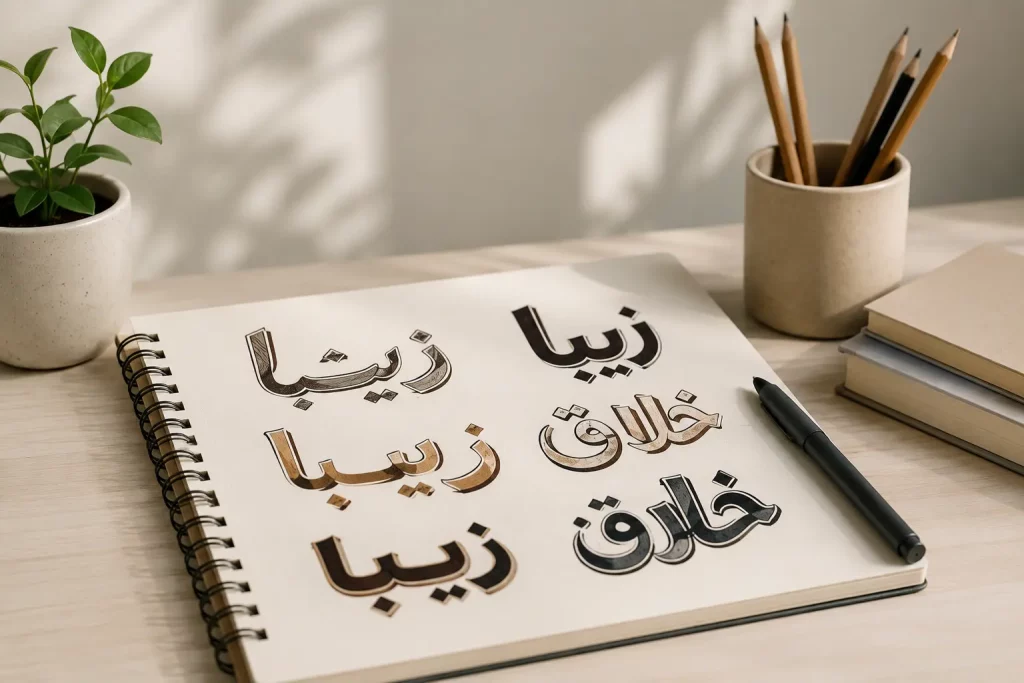 زیبا
خلاق
خلاق
زیبا
زیبا